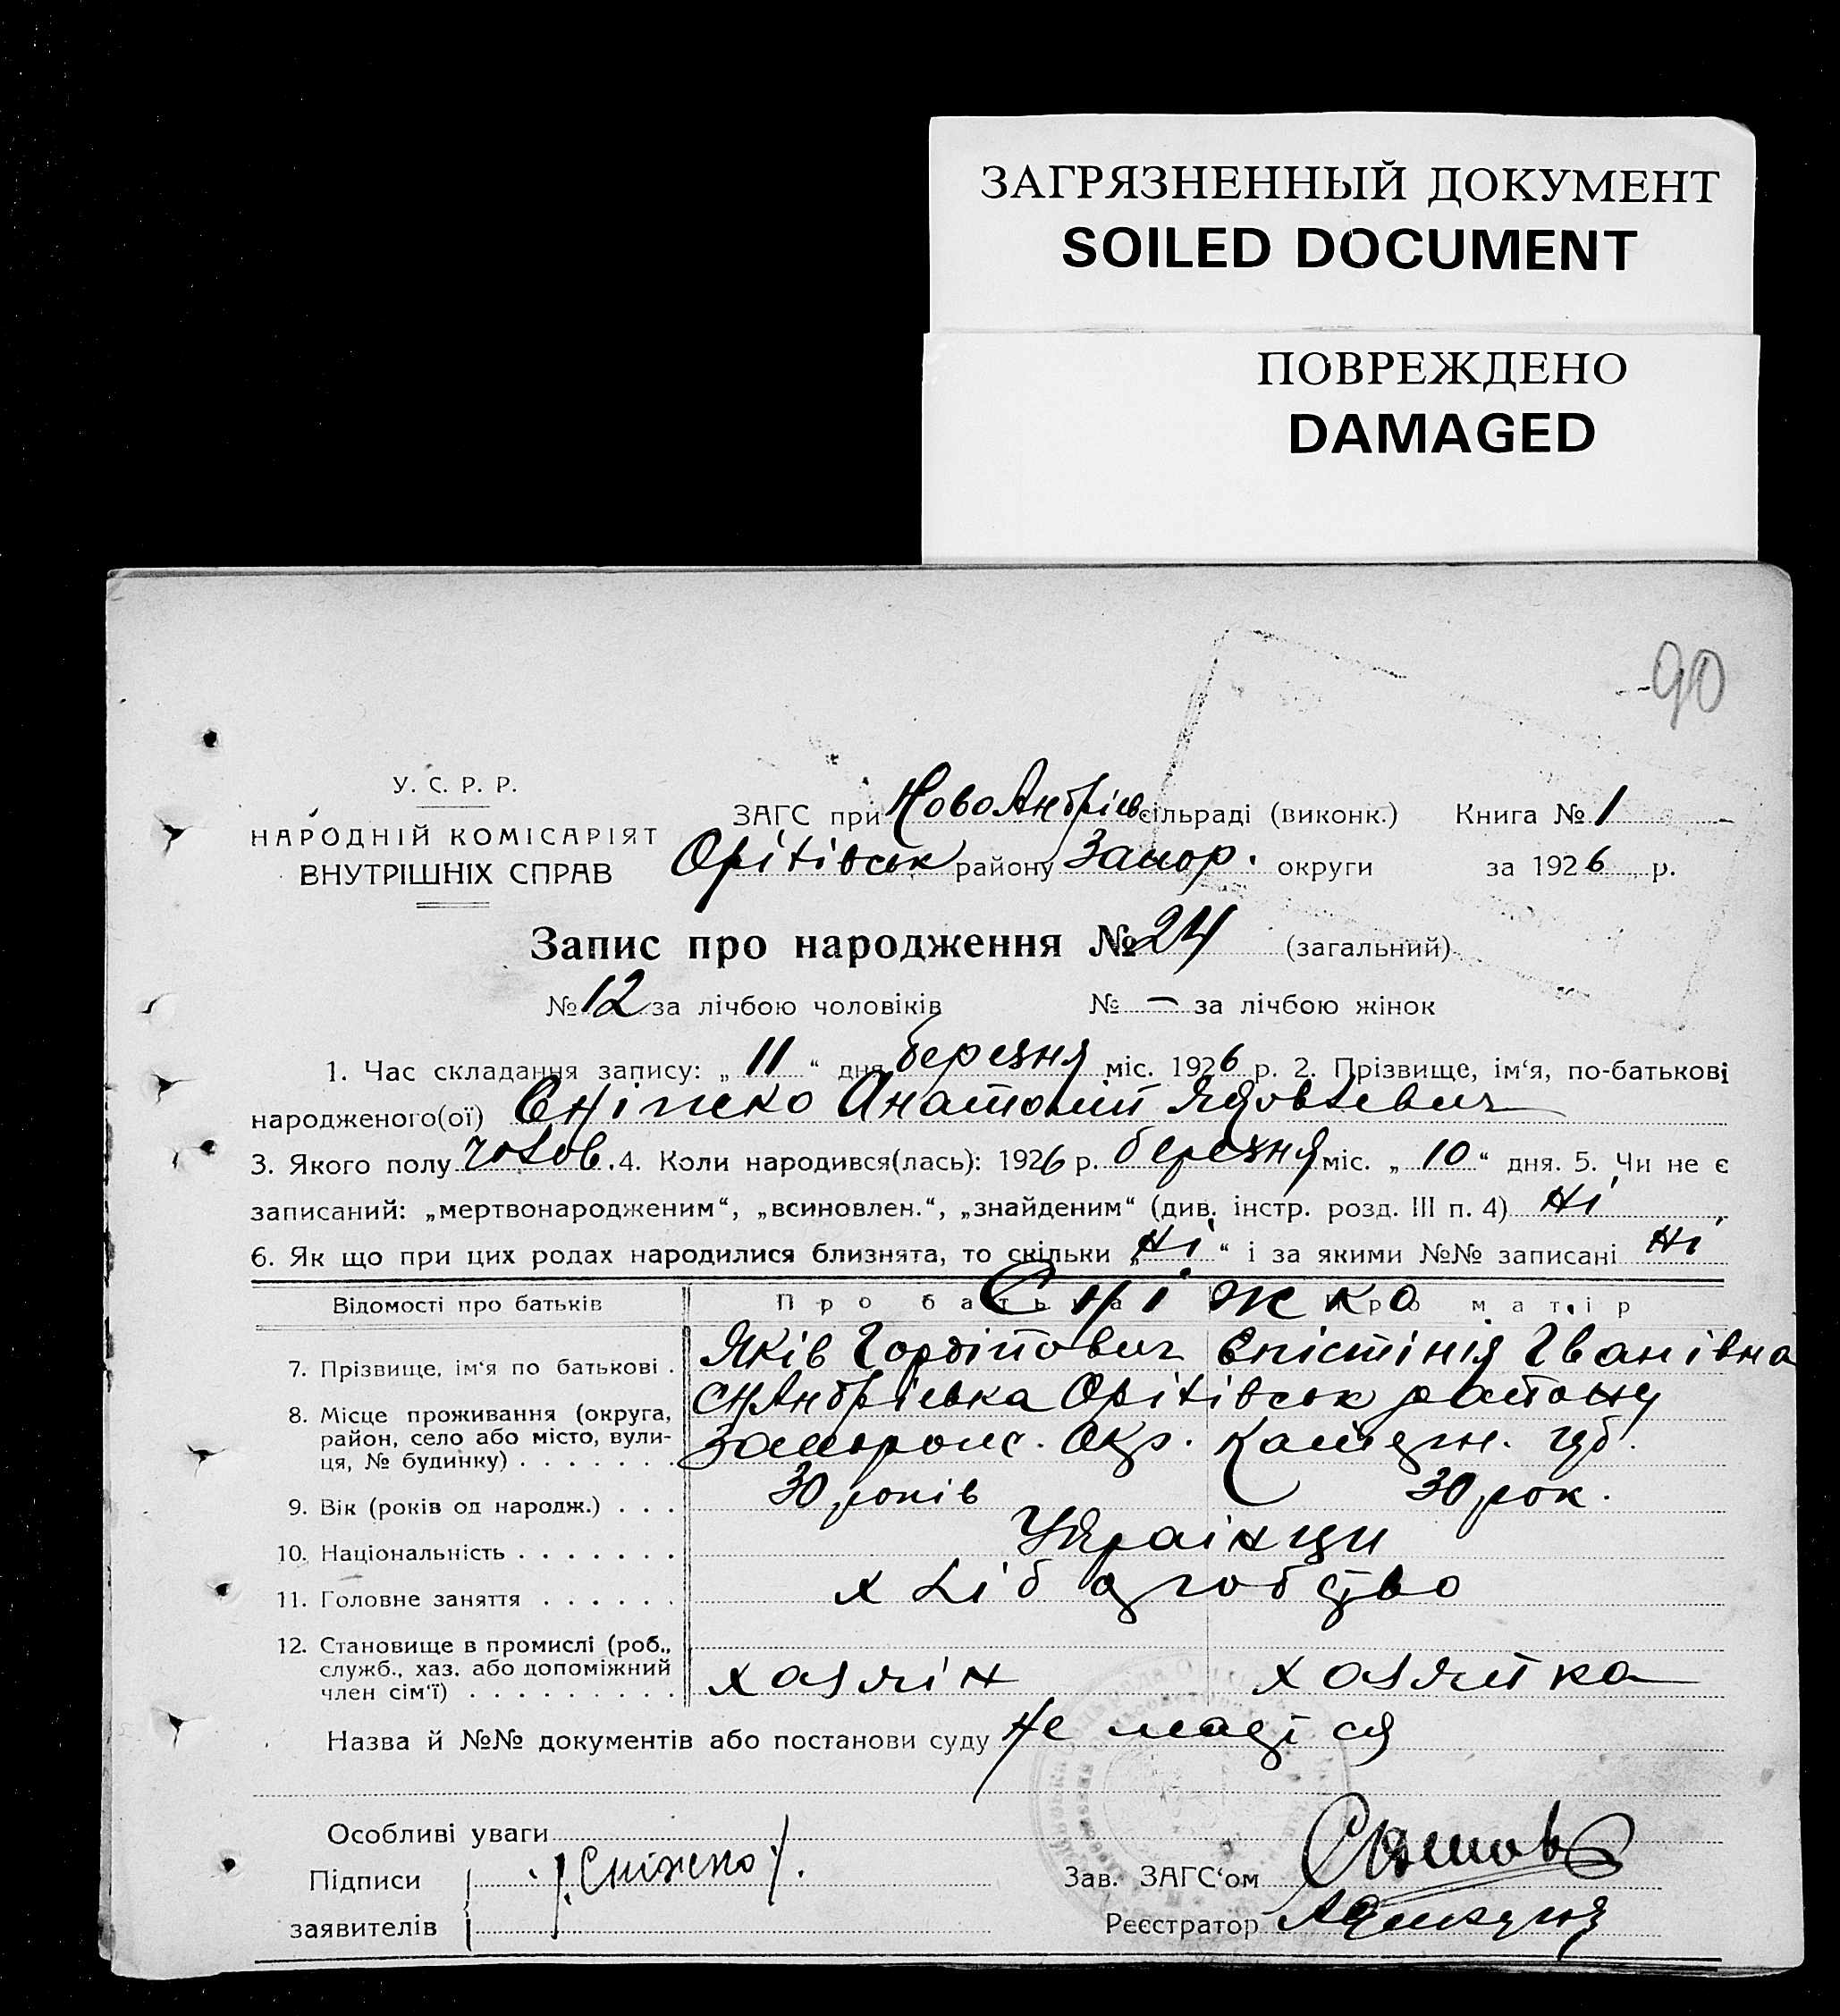 ЗАГРЯЗНЕННЫЙ ДОКУМЕНТ
SOILED DOCUMENT
ПОВРЕЖДЕНО
DAMAGED
90
У. С. Р. Р.
НАРОДНІЙ КОМІСАРІЯТ
ВНУТРІШНІХ СПРАВ
ЗАГС при НовоАндріев сільраді (виконк.) Книга № 1
Оріхівськ району Запор. округи за 1926 р.
Запис про народження № 24 (загальний)
№ 12 за лічбою чоловіків № — за лічбою жінок
1. Час складання запису: „ 11 “ дня березня міс. 1926 р. 2. Прізвище, ім‘я, по-батькові
народженого(ої) Сніжко Анатолій Яковлевич
3. Якого полу чолов. 4. Коли народився(лась): 1926 р. березня міс. „ 10 “ дня. 5. Чи не є
записаний: „мертвонародженим“, „всиновлен.“, „знайденим“ (див. інстр. розд. III п. 4) Ні
6. Як що при цих родах народилися близнята, то скільки „ Ні “ і за якими №№ записані Ні
Відомості про батьків Про батька Про матір
Сніжко
7. Прізвище, ім‘я по батькові . Яків Гордійович Єпістінія Іванівна
8. Місце проживання (округа, район, село або місто, вулиця, № будинку) . . . . . . . сНАндріевка Оріхівськ району
Запорожс. Окр. Катерин. губ.
9. Вік (років од народж.) . . . 30 років 30 рок.
10. Національність . . . . . . . Українци
11. Головне заняття . . . . . . хліборобство
12. Становище в промислі (роб., служб., хаз. або допоміжний член сім‘ї) . . . . . . . . . хазяін хазяйка
Назва й №№ документів або постанови суду Не маеться
Особливі уваги
Підписи Сніжко Зав. ЗАГС‘ом
заявителів Реєстратор